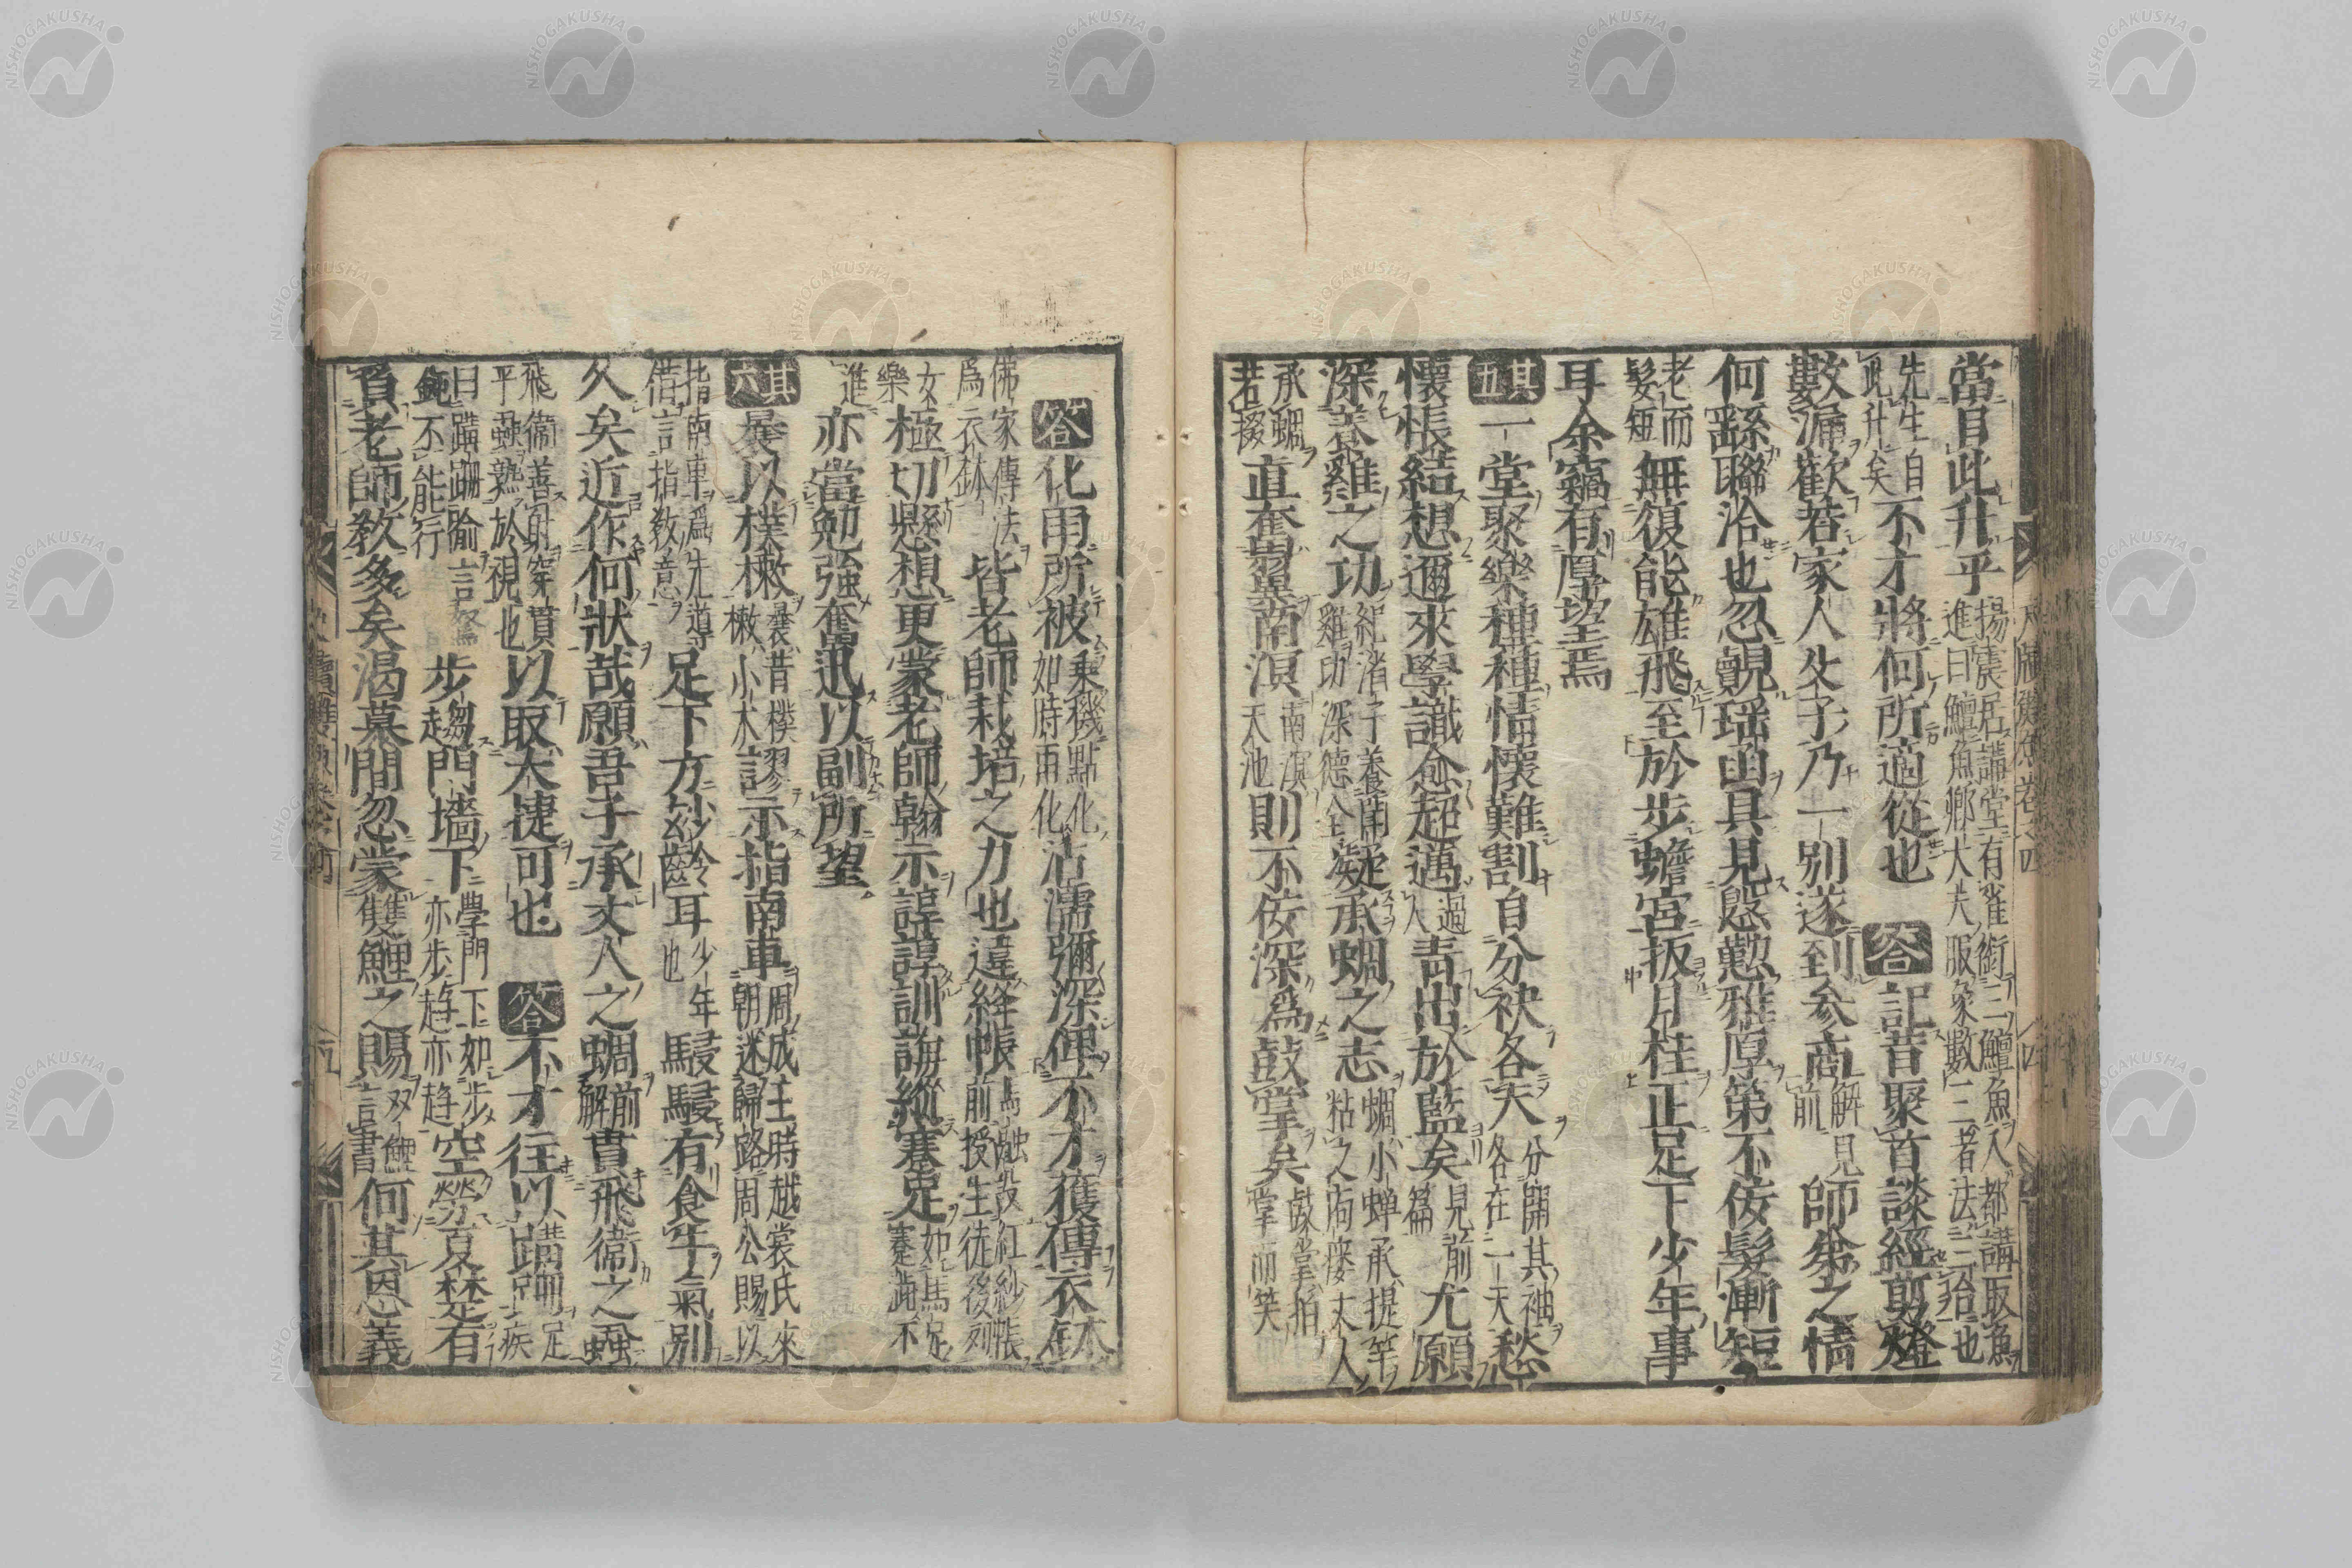 當自此升乎 揚震居講堂有雀銜三鱣魚入都講取魚
進曰鱣魚卿大夫服象數三者法三台也
先生自此升矣 不才將何所適從也 答 記昔聚首談經剪燈
數漏歡若家人父子乃一別遂到至參商 解見前 師弟之情
何繇聯洽也忽覿瑤函具見慇懃雅厚第不佞髮漸短
老而髮短 無復能雄飛至於步蟾宮扳月桂正足下少年事
耳余竊有厚望焉
其五 一堂聚樂種種情懷難割自分袂各天 分開其袖各在一天 愁
懷悵結想邇來學識愈超邁 過人 青出於藍矣 見前篇 尤願
深養雞之功 紀渻子養鬪雞功深德全 凝承蜩之志 蜩小蟬承提竿粘之痀瘻丈人
承蜩若掇 直奮翼南溟 南溟天池 則不佞深爲鼓掌矣 鼓掌拍掌而笑
答 化雨所被 乘機點化如時雨化 沾濡彌深俾不才獲傳衣鉢
佛家傳法爲衣鉢 皆老師栽培之力也違絳帳 馬融設紅紗帳前授生徒後列
女樂 極切懸想更蒙老師翰示諄諄訓誨縱蹇足 如馬足蹇跛不
進 亦當勉強奮迅以副所望
其六 曩以樸樕 曩昔樸樕小木 謬示指南車 周成王時越裳氏來朝迷歸路周公賜以
指南車爲先導借言指教意 足下方妙齡耳 少年也 駸駸有食牛氣別
久矣近作何狀哉願吾子承丈人之蜩 解前 貫飛衞之蝨
飛衞善射穿貫乎蝨熟於視也 以取大捷可也 答 不才往以蹣跚 足疾
曰蹣跚喻言駑鈍不能行 步趨門墻下 學門下如步亦步趋亦趋 空勞夏楚有
負老師敎多矣渴慕間忽蒙雙鯉之賜 双鯉言書 何其恩義